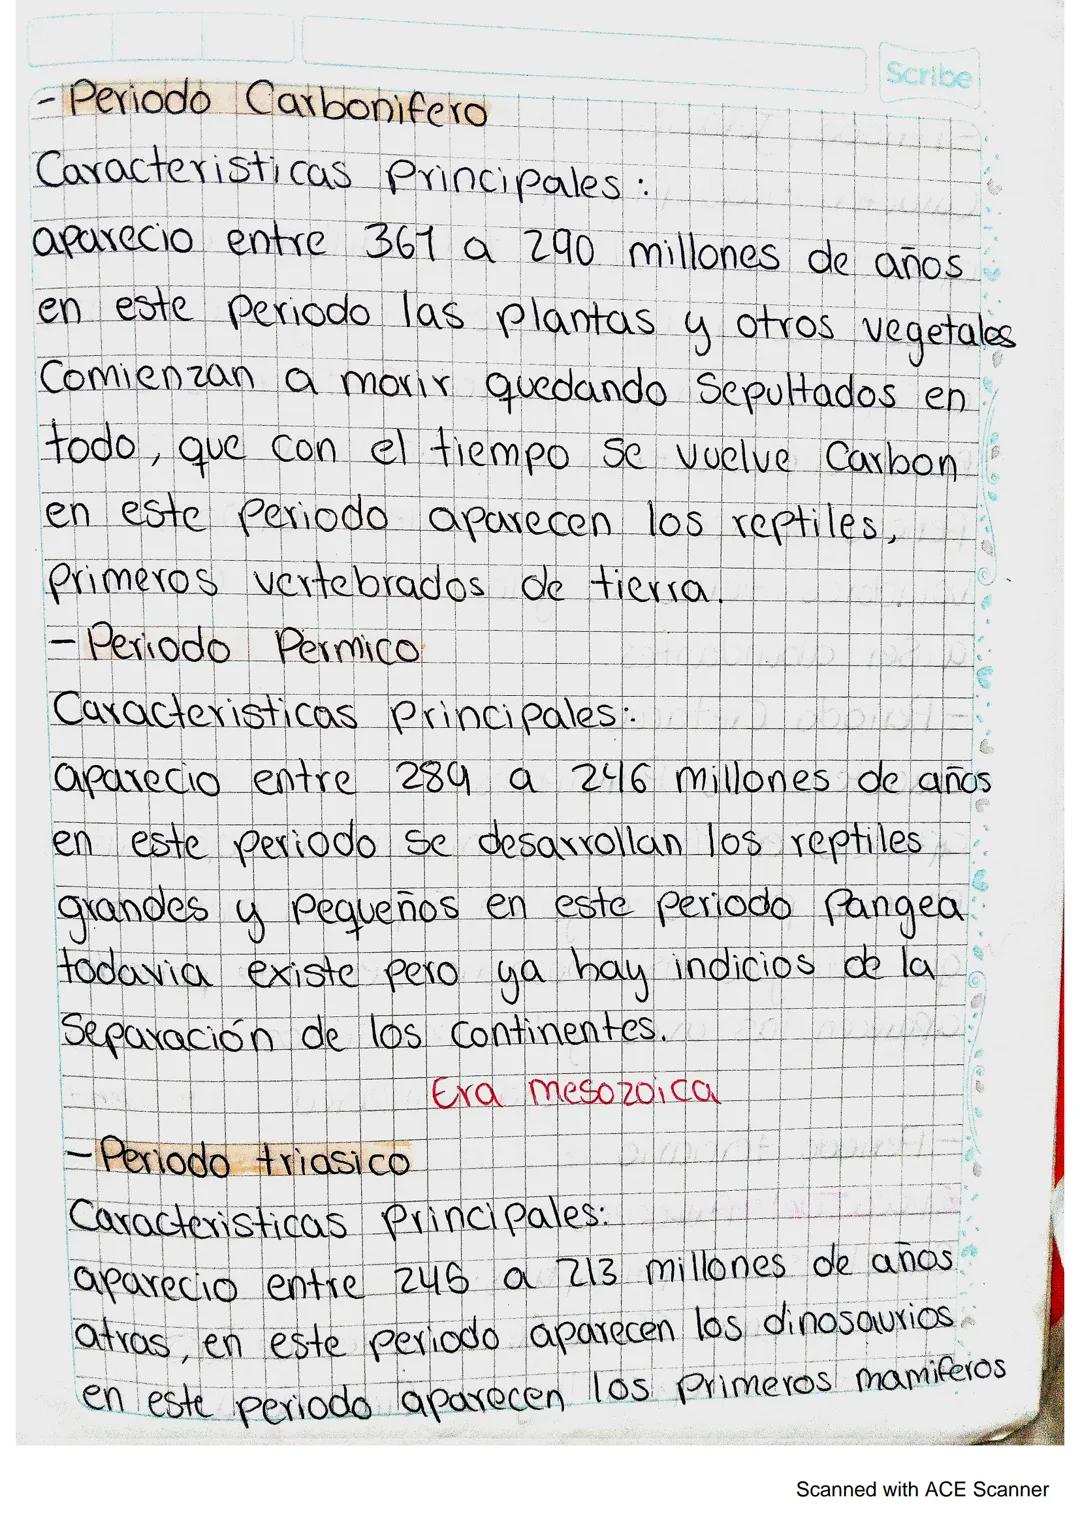 Scribe
- Periodo Carbonifero
Caracteristicas Principales :
aparecio entre 367 a 290 millones de años
en este periodo las plantas y otros vegetales
Comienzan a morir quedando Sepultados en
todo, que con el tiempo se vuelve Carbon
en este periodo aparecen los reptiles,
Primeros vertebrados de tierra.
- Periodo Permico
Caracteristicas Principales:
aparecio entre 289 a 246 millones de años
en este periodo se desarrollan los reptiles
grandes y pequeños en este periodo Pangea
todavia existe pero ya hay indicios de la
Separación de los continentes.
Era mesozoica
- Periodo triasico
Caracteristicas Principales:
aparecio entre 246 a 213 millones de años
atras, en este periodo aparecen los dinosaurios
en este periodo aparecen los primeros mamiferos
Scanned with ACE Scanner